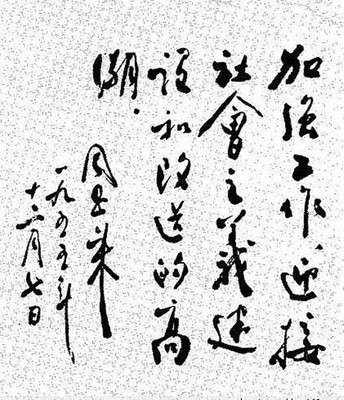 加强工作，迎接
社會主義建
設和改造的高
潮．
周恩来
一九五五年
十二月七日